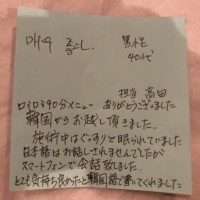 男性
40代
担当 高田
ロミロミ90分メニュー ありがとうございました
韓国からお越し頂きました。
施術中はぐっすりと眠られていました
日本語はお話しされませんでしたが
スマートフォンで会話致しました。
とても気持ち良かったと韓国語で書いてくれました